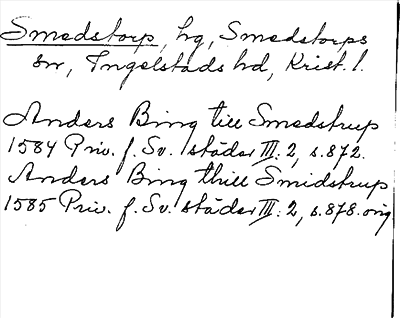 Smedstorp, hg, Smedstorps
sn, Ingelstads hd, Krist. l.
Anders Bing till Smedstrup
1584 Priv. f. Sv. städer III: 2, s. 872.
Anders Bing thill Smidstrup
1585 Priv. f. Sv. städer III: 2, s. 878. orig.